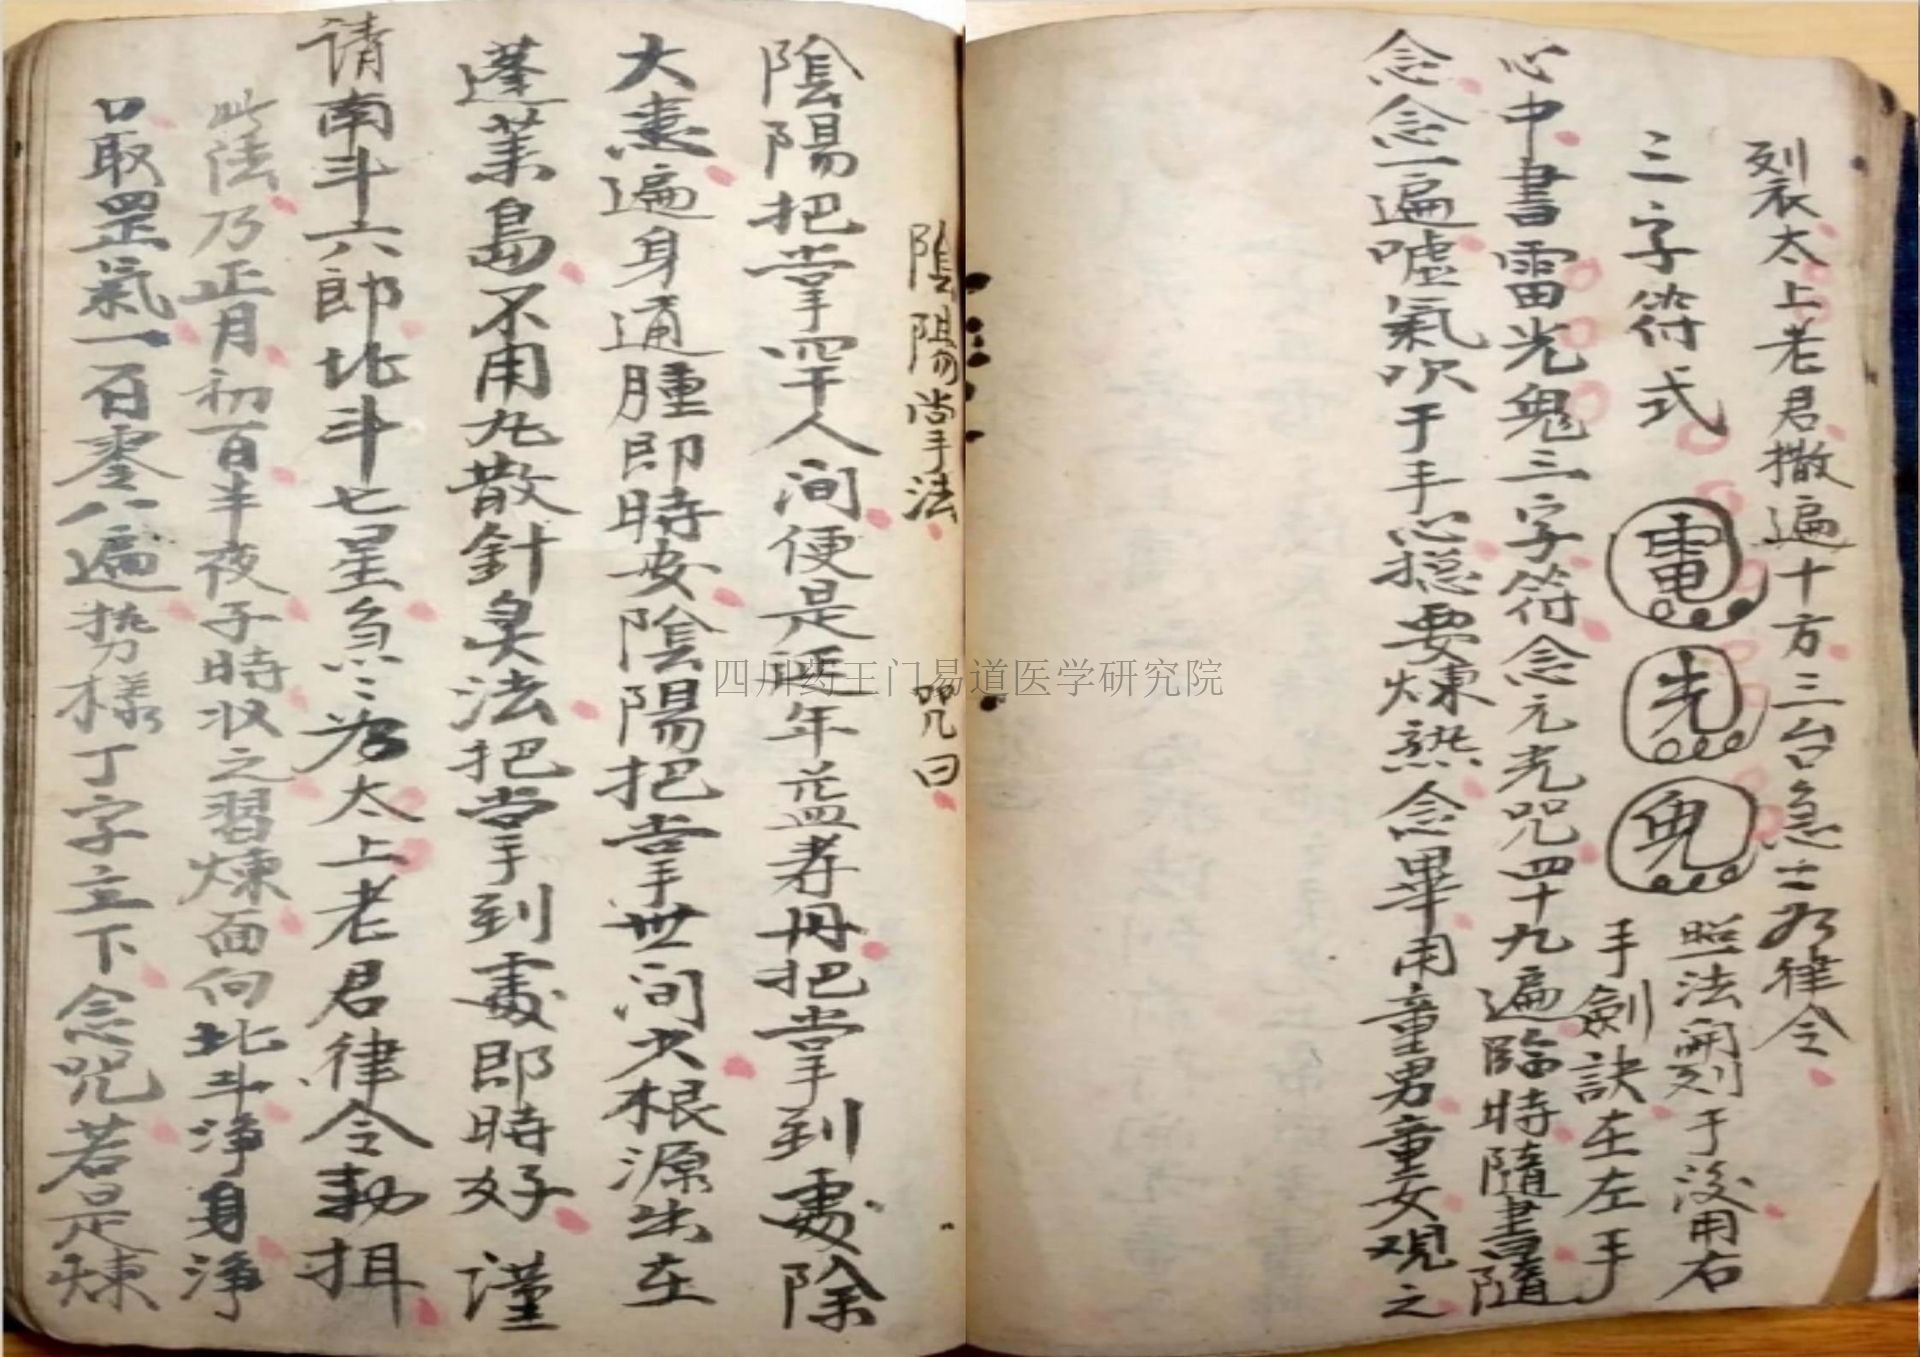 列衣太上老君撒遍十方三台急急如律令
三字符式
電
光
鬼
照法開列于後用右
手劍訣在左手
心中書雷光鬼三字符念元光咒四十九遍臨時隨書隨
念念一遍噓氣吹于手心揌要煉熟念畢用童男童女观之
陰陽掌法 咒曰
陰陽把掌四千人间便是延年益寿丹把掌到處除
大患遍身通腫即時安陰陽把掌世间大根源出在
蓬莱島不用丸散針灸法把掌到處即時好 謹
请南斗六郎北斗七星急急为太上老君律令勅揖
此法乃正月初一百半夜子時状之習煉面向北斗净身净
口取罡氣一百零八遍势樣丁字立下念咒若是煉
四川药王门易道医学研究院